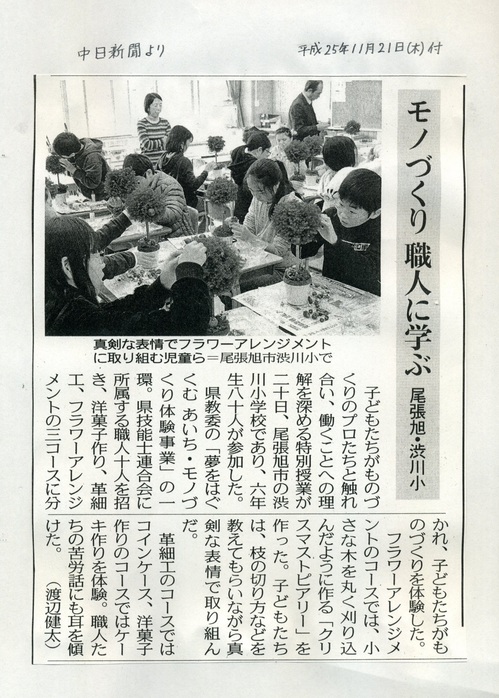 中日新聞より
平成25年11月21日(木)付
モノづくり 職人に学ぶ
尾張旭・渋川小
真剣な表情でフラワーアレンジメント
に取り組む児童ら＝尾張旭市渋川小で
子どもたちがものづ
くりのプロたちと触れ
合い、働くことへの理
解を深める特別授業が
二十日、尾張旭市の渋
川小学校であり、六年
生八十人が参加した。
県教委の「夢をはぐ
くむ あいち・モノづ
くり体験事業」の一
環。県技能士連合会に
所属する職人十人を招
き、洋菓子作り、革細
工、フラワーアレンジ
メントの三コースに分
かれ、子どもたちがも
のづくりを体験した。
フラワーアレンジメ
ントのコースでは、小
さな木を丸く刈り込
んだように作る「クリ
スマストピアリー」を
作った。子どもたち
は、枝の切り方などを
教えてもらいながら真
剣な表情で取り組ん
だ。
革細工のコースでは
コインケース、洋菓子
作りのコースではケー
キ作りを体験。職人た
ちの苦労話にも耳を傾
けた。（渡辺健太）